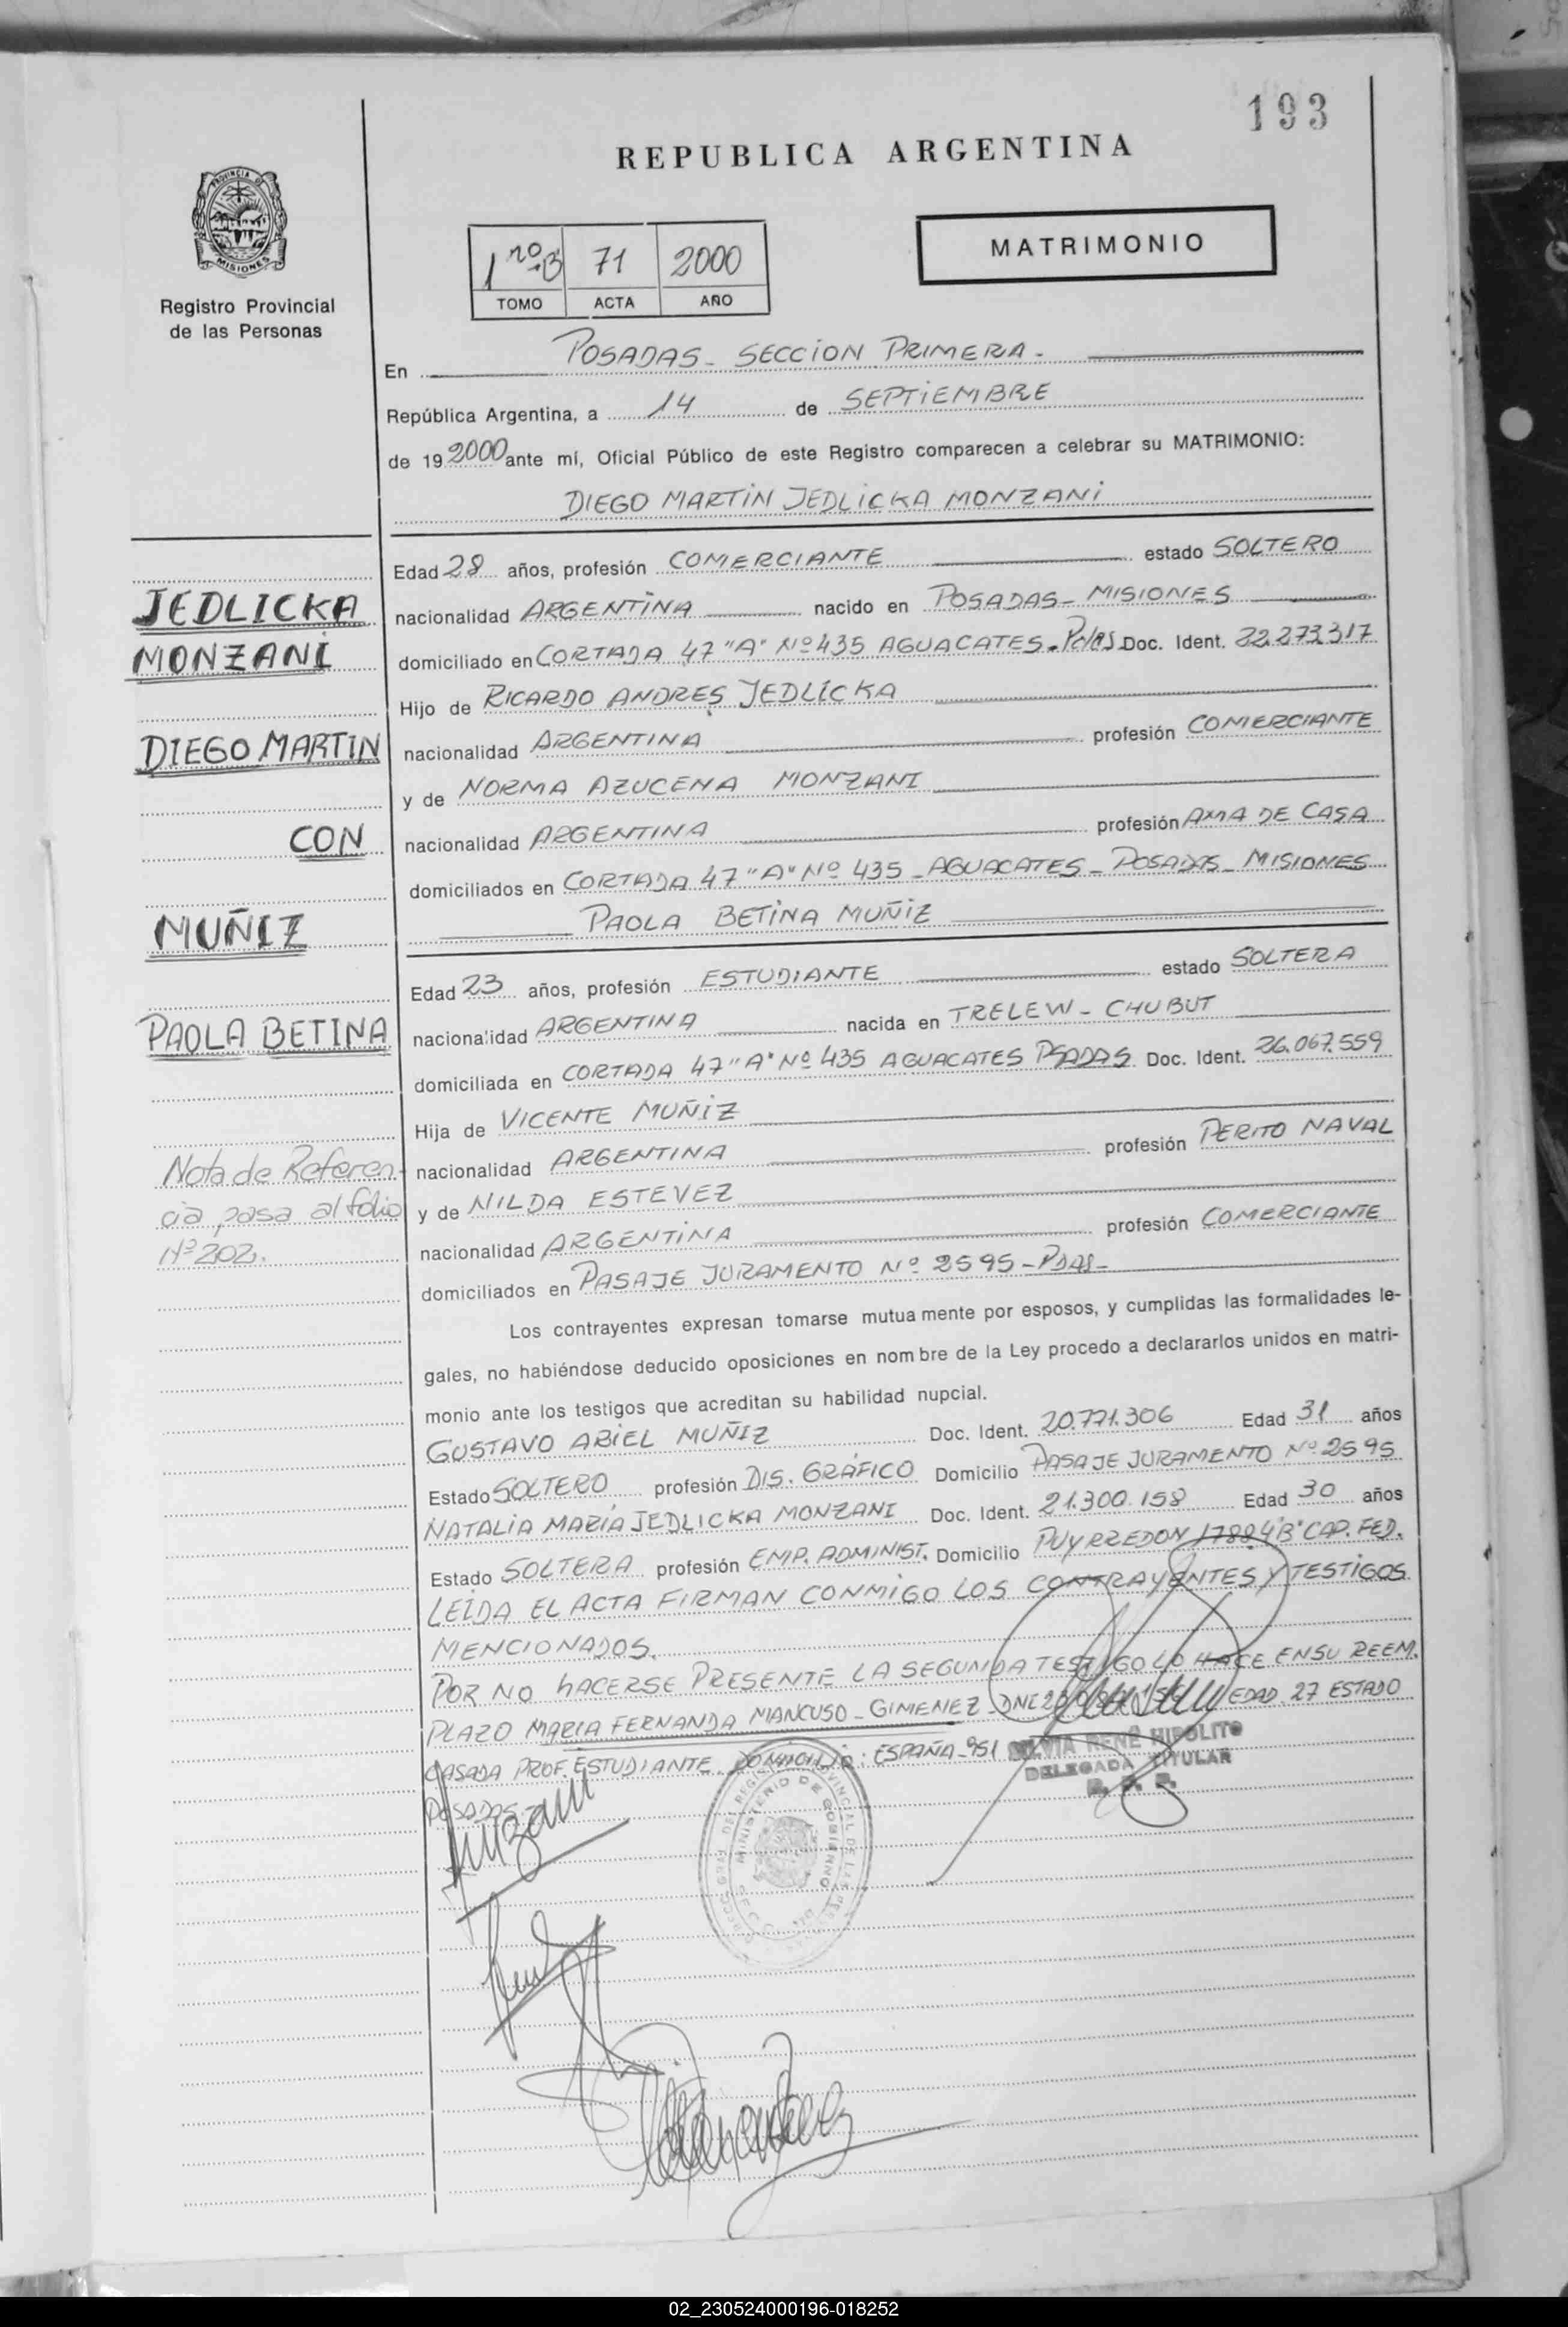 193
REPUBLICA ARGENTINA
PROVINCIA DE
MISIONES
Registro Provincial
de las Personas
1ro B 71 2000
TOMO ACTA AÑO
MATRIMONIO
En POSADAS - SECCION PRIMERA -
República Argentina, a 14 de SEPTIEMBRE
de 19 2000 ante mí, Oficial Público de este Registro comparecen a celebrar su MATRIMONIO:
DIEGO MARTIN JEDLICKA MONZANI
JEDLICKA
MONZANI
DIEGO MARTIN
CON
MUÑIZ
PAOLA BETINA
Nota de Referen-
cia pasa al folio
Nº 202.
Edad 28 años, profesión COMERCIANTE estado SOLTERO
nacionalidad ARGENTINA nacido en POSADAS - MISIONES
domiciliado en CORTADA 47 "A" Nº 435 AGUACATES - Pdas Doc. Ident. 22.273.317
Hijo de RICARDO ANDRES JEDLICKA
nacionalidad ARGENTINA profesión COMERCIANTE
y de NORMA AZUCENA MONZANI
nacionalidad ARGENTINA profesión AMA DE CASA
domiciliados en CORTADA 47 "A" Nº 435 - AGUACATES - POSADAS - MISIONES
PAOLA BETINA MUÑIZ
Edad 23 años, profesión ESTUDIANTE estado SOLTERA
nacionalidad ARGENTINA nacida en TRELEW - CHUBUT
domiciliada en CORTADA 47 "A" Nº 435 AGUACATES PSADAS Doc. Ident. 26.067.559
Hija de VICENTE MUÑIZ
nacionalidad ARGENTINA profesión PERITO NAVAL
y de NILDA ESTEVEZ
nacionalidad ARGENTINA profesión COMERCIANTE
domiciliados en PASAJE JURAMENTO Nº 2595 - PDAS -
Los contrayentes expresan tomarse mutuamente por esposos, y cumplidas las formalidades le-
gales, no habiéndose deducido oposiciones en nombre de la Ley procedo a declararlos unidos en matri-
monio ante los testigos que acreditan su habilidad nupcial.
GUSTAVO ARIEL MUÑIZ Doc. Ident. 20.771.306 Edad 31 años
Estado SOLTERO profesión DIS. GRÁFICO Domicilio PASAJE JURAMENTO Nº 2595
NATALIA MARÍA JEDLICKA MONZANI Doc. Ident. 21.300.158 Edad 30 años
Estado SOLTERA profesión EMP. ADMINIST. Domicilio PUYRREDON 1788 4"B" CAP. FED.
LEIDA EL ACTA FIRMAN CONMIGO LOS CONTRAYENTES Y TESTIGOS
MENCIONADOS.
POR NO HACERSE PRESENTE LA SEGUNDA TESTIGO LO HACE EN SU REEM-
PLAZO MARIA FERNANDA MANCUSO - GIMENEZ - DNI EDAD 27 ESTADO
CASADA PROF. ESTUDIANTE. DOMICILIO: ESPAÑA - 951
POSADAS -
SILVIA RENÉ HIPOLITO
DELEGADA TITULAR
R. P. P.
MINISTERIO DE GOBIERNO
02_230524000196-018252